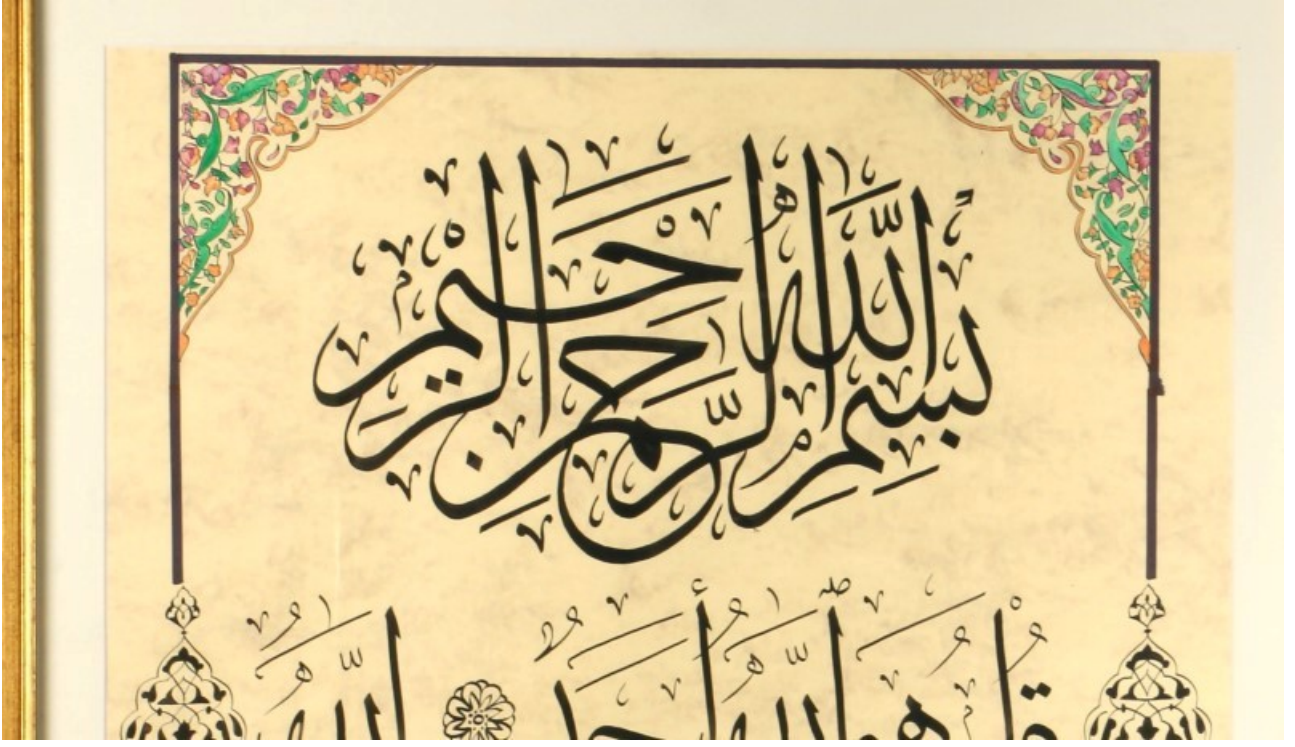 بِسْمِ اللَّهِ الرَّحْمَٰنِ الرَّحِيمِ
قُلْ هُوَ اللَّهُ أَحَدٌ اللَّهُ